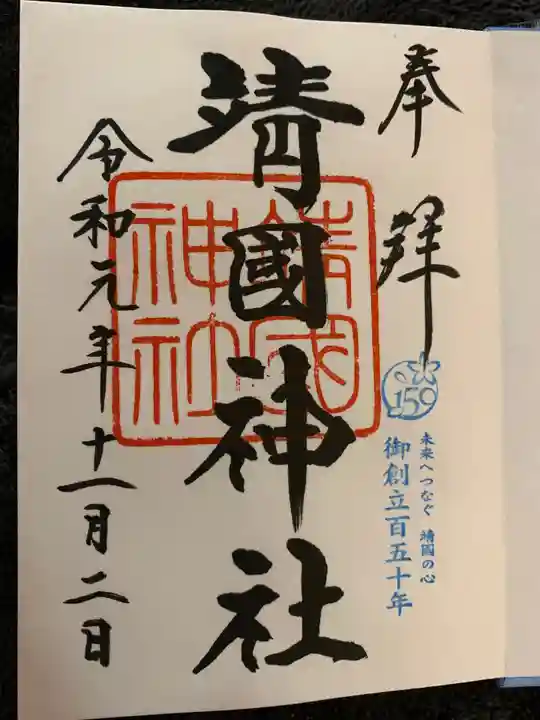 奉拝
150
未来へつなぐ 靖國の心
御創立百五十年
靖國神社
靖國神社
令和元年十一月二日